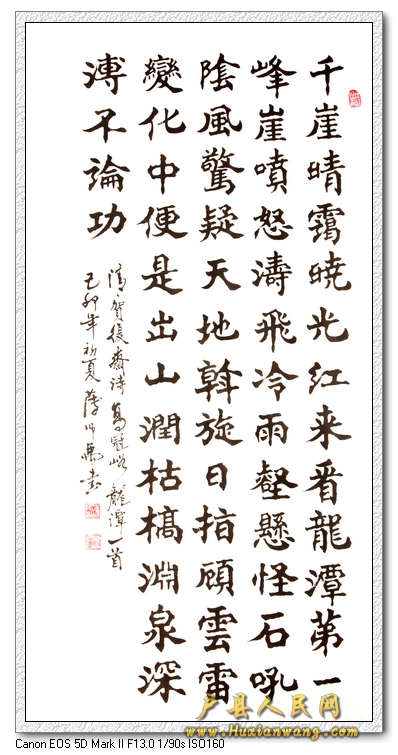 千崖晴靄曉光紅来看龍潭第一
峰崖噴怒濤飛冷雨壑懸怪石吼
陰風驚疑天地斡旋日指顧雲雷
變化中便是出山潤枯槁淵泉深
溥不論功
清賀復齋詩高冠峪龍潭一首
己卯年初夏書
户县人民网
www.Huxianwang.com
Canon EOS 5D Mark II F13.0 1/90s ISO160